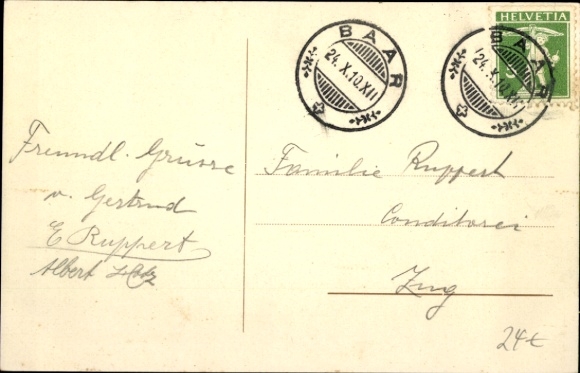 HELVETIA
5
BAAR
24.X.10.XII
BAAR
24.X.10.XII
Freundl. Grüsse
v. Gertrud
E Ruppert
Albert
Familie Ruppert
Conditorei
Zug
24t